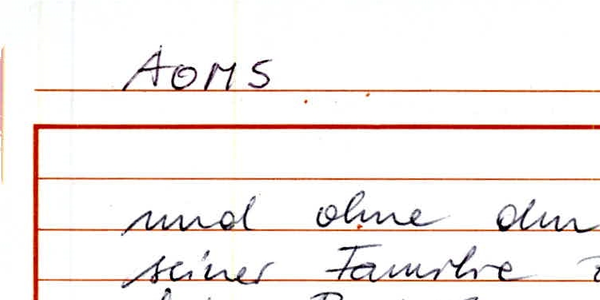 AOMS
und ohne den
seiner Familie